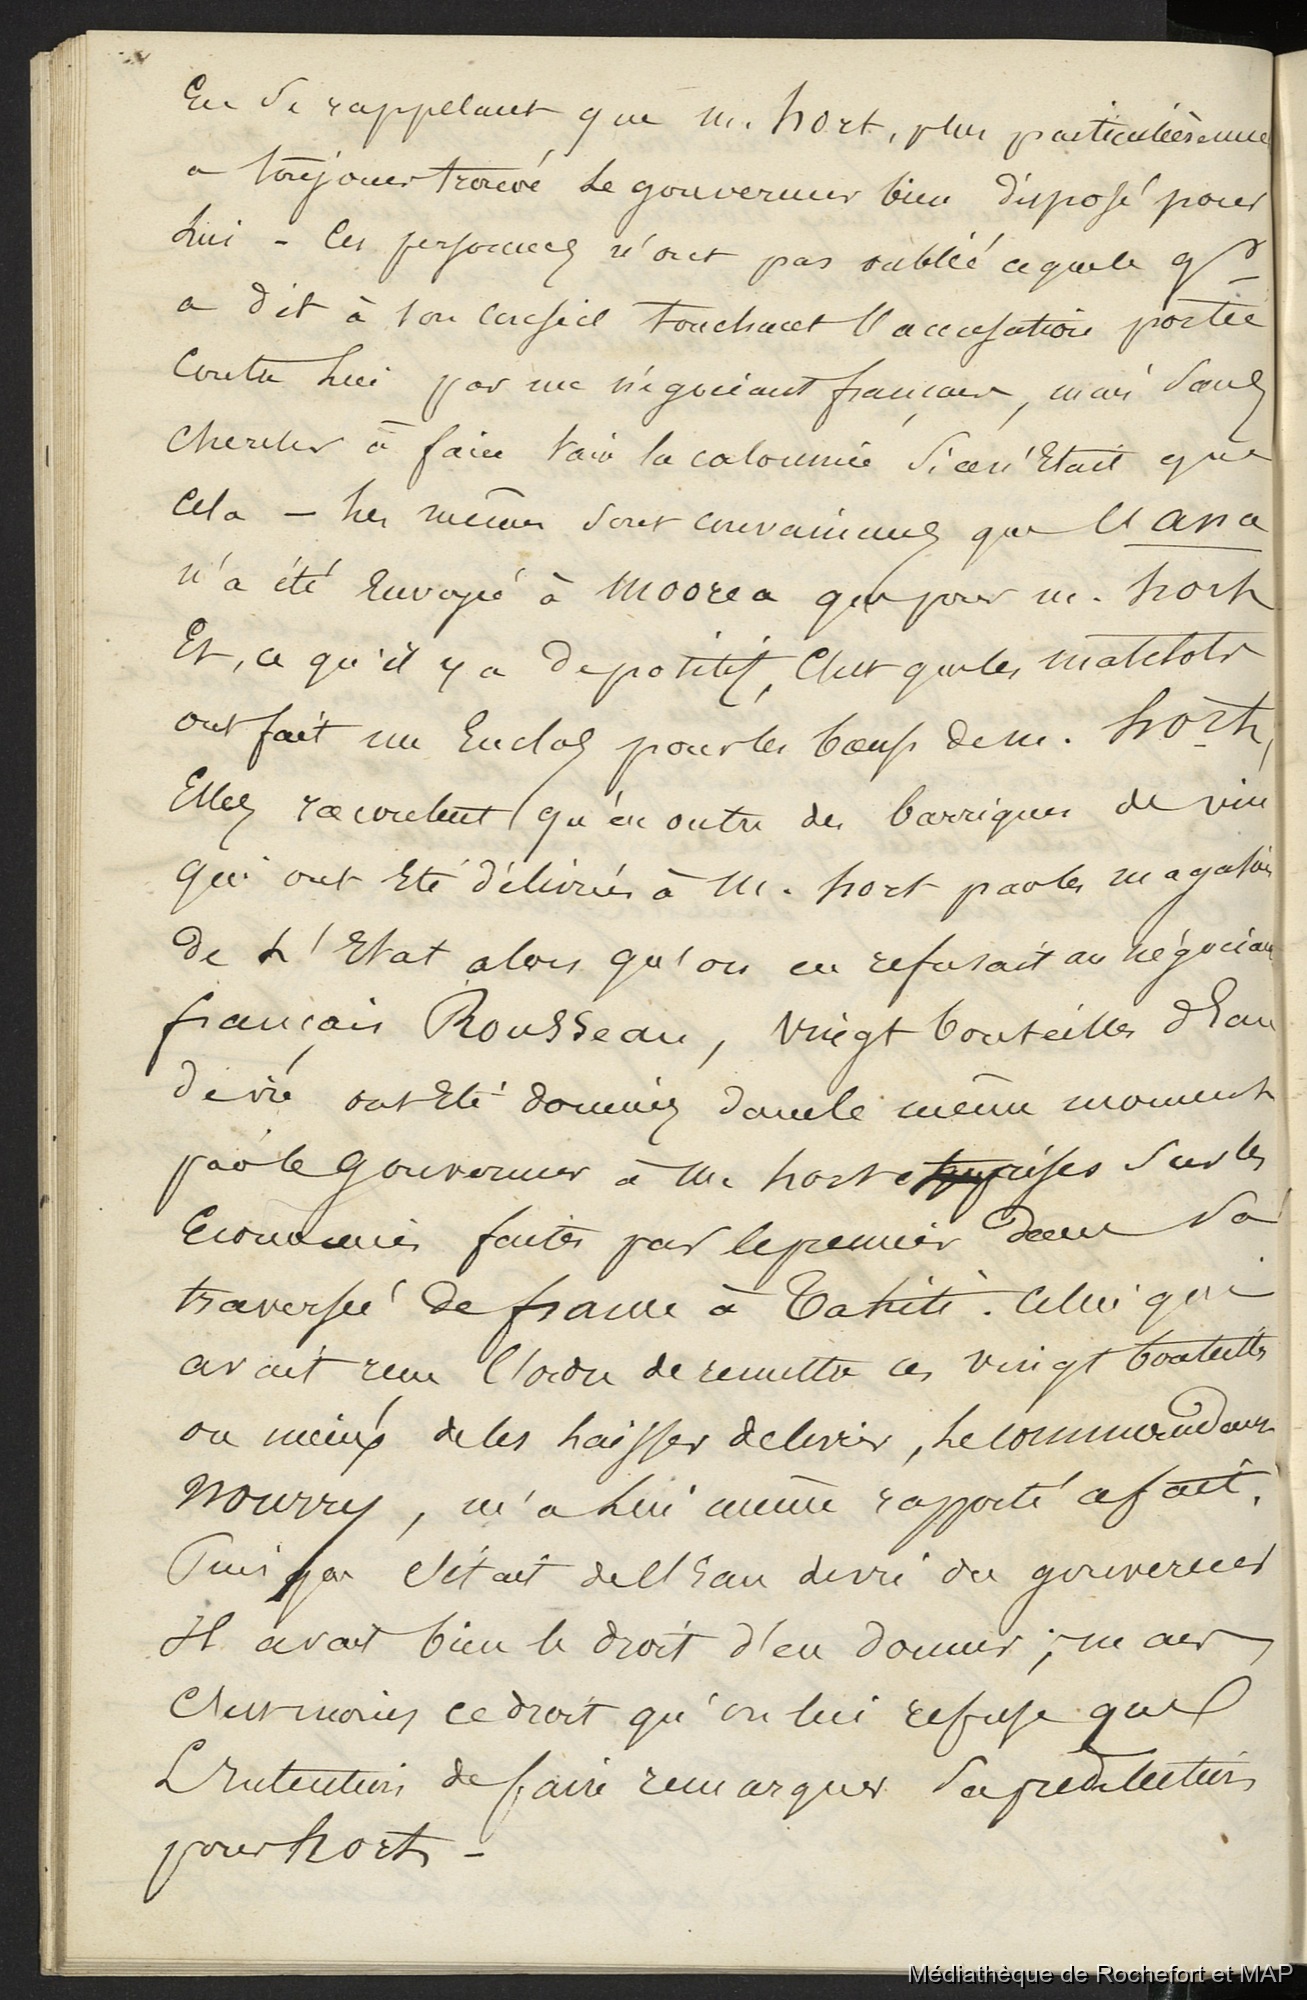 En se rappelant que m. hort, plus particulièreme
a toujours trouvé le gouverneur bien disposé pour
lui - Ces personnes n'ont pas oublié ce que le gr
a dit à son conseil touchant l'accusation portée
contre lui par un négociant français, mais sans
chercher à faire voir la calomnie si ce n'était que
cela - les mêmes sont convaincues que l'ana
n'a été Envoyé à Moorea que pour m. hort
Et, ce qu'il y a de positif, C'est que les matelots
ont fait un Enclos pour les boeufs de m. hort,
Elles racontent qu'en outre des barriques de vin
qui ont Eté délivrés à M. hort par les magasins
de L'Etat alors qu'on en refusait au négocian
français Rousseau, vingt bouteilles d'Eau
de vie ont Eté données dans le même moment
par le Gouverneur à M. hort prises sur les
Economies faites par le premier dans sa
traversée de france à Tahiti. Celui qui
avait reçu l'ordre de remettre ces vingt bouteilles
ou mieux de les laisser délivrer, le commandant
Nourry, m'a lui même rapporté ce fait.
Puisque c'était de l'Eau de vie du gouverneur
Il avait bien le droit d'en donner; mais
C'est moins ce droit qu'on lui refuse que
L'Intention de faire remarquer sa prédilection
pour hort -
Médiathèque de Rochefort et MAP